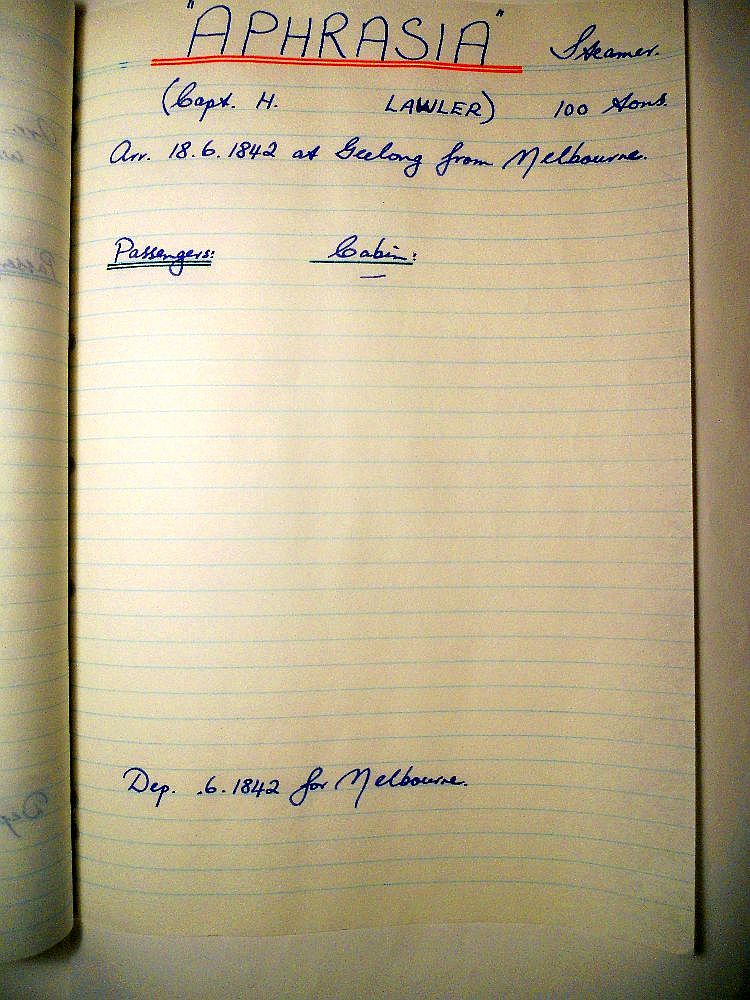 "APHRASIA" Steamer.
(Capt. H. LAWLER) 100 tons.
Arr. 18.6.1842 at Geelong from Melbourne.
Passengers: Cabin:
—
Dep. .6.1842 for Melbourne.